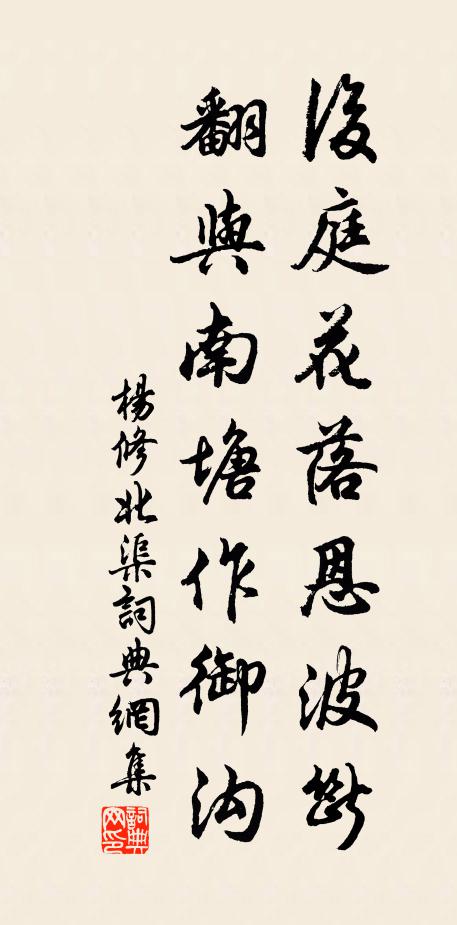 後庭花落恩波断
翻與南塘作御沟
楊修北渠詞典網集
詞典网印